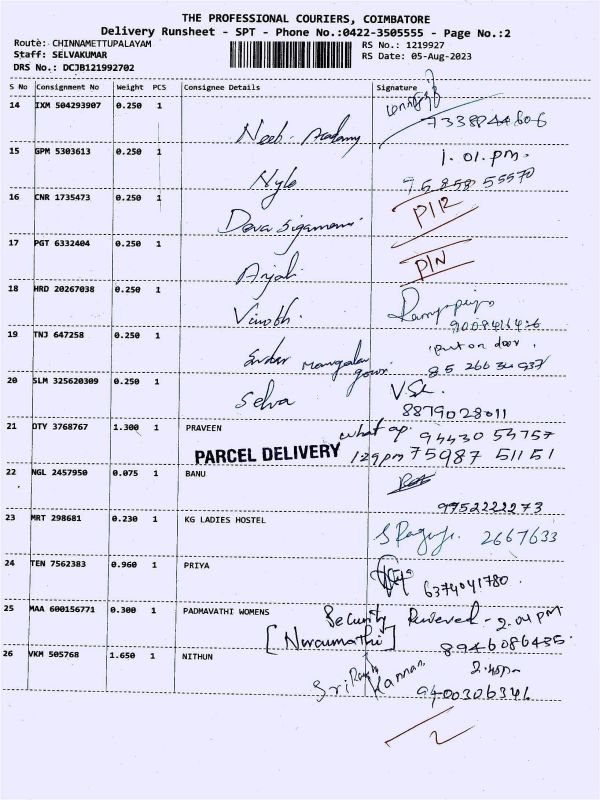 THE PROFESSIONAL COURIERS, COIMBATORE
Delivery Runsheet - SPT - Phone No.:0422-3505555 - Page No.:2
Route: CHINNAMETTUPALAYAM RS No.: 1219927
Staff: SELVAKUMAR RS Date: 05-Aug-2023
DRS No.: DCJB121992702
S No Consignment No Weight PCS Consignee Details Signature
14 IXM 504293907 0.250 1
Neeb. Academy 7338844606
15 GPM 5303613 0.250 1 1.01.pm.
Nyle 75258 55570
16 CNR 1735473 0.250 1
Deva Sigamani
17 PGT 6332404 0.250 1 PIN
Anjali
18 HRD 20267038 0.250 1
Vinoth. 9008416426
19 TNJ 647258 0.250 1 put on door.
Mangalam
20 SLM 325620309 0.250 1
Selva 8879028011
21 OTY 3768767 1.300 1 PRAVEEN what ap 94430 54757
PARCEL DELIVERY 129pm 75987 51151
22 NGL 2457950 0.075 1 BANU
9952222273
23 MRT 298681 0.230 1 KG LADIES HOSTEL
2667633
24 TEN 7562383 0.960 1 PRIYA
6374041780.
25 MAA 600156771 0.300 1 PADMAVATHI WOMENS Security Received - 2.04 PM
8946086435.
26 VKM 505768 1.650 1 NITHUN 2.40pm
Sri Kannan 9400306341
2